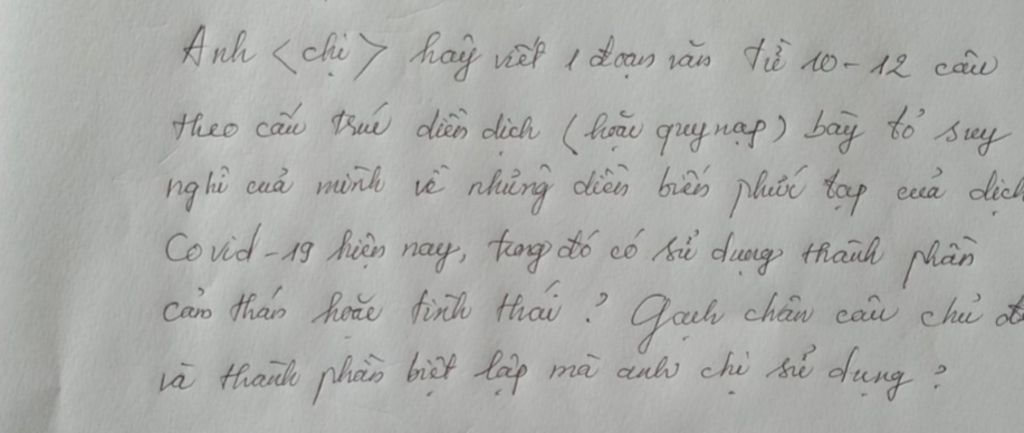 Anh <chị> hãy viết 1 đoạn văn từ 10-12 câu
theo cấu trúc diễn dịch (hoặc quy nạp) bày tỏ suy
nghĩ của mình về những diễn biến phức tạp của dịch
Covid-19 hiện nay, trong đó có sử dụng thành phần
cảm thán hoặc tình thái? Gạch chân câu chủ đ
và thành phần biệt lập mà anh chị sử dụng?